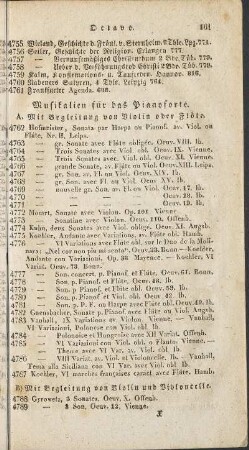 Octavo. 161
4755 Wieland, Geschichte d. Fräul. v. Sternheim 2 Thle. Lpz. 771.
4756 Seiler, Geschichte der Religion. Erlangen 777.
4757 — Vernunftmäßiges Christenthum 2 Bde. Tüb. 779.
4758 — Ueber d. Versöhnungstod Christi 2 Bde. Tüb. 779.
4759 Salm, Konfirmations- u. Taufreden. Hannov. 816.
4760 Rabeners Satyren, 4 Thle. Leipzig 764.
4761 Frankfurter Agenda.
Musikalien für das Pianoforte.
A. Mit Begleitung von Violin oder Flöte.
4762 Hofmeister, Sonata par Harpe ou Pianof. av. Viol. ou
Flûte, Nr. II. Leipz.
4763 — gr. Sonate av. Flûte obligée. Oeuv. VIII. lb.
4764 — Trois Sonates avec Viol. Oeuv. IX. lb.
4765 — Trois Sonates av. Viol. obl. Oeuv. IX. Vienne.
4766 — grande Sonate, av. Flûte ou Viol. Oeuv. XIII. Leipz.
4767 — gr. Son. av. Fl. ou Viol. Oeuv. XIV. lb.
4768 — gr. Son. av. Viol. ou Fl. Oeuv. XV. lb.
4769 — nouvelle gr. Son. av. Fl. ou Viol. Oeuv. 16. lb.
4770 — Oeuv. 17. lb.
4771 — Oeuv. 18. lb.
4772 Mozart, Sonate avec Violon. Op. 101 Vienne.
4773 — Sonatine avec Violon. Oeuv. Offenb.
4774 Kuhn, deux Sonates avec Viol. obligée. Oeuv. IX. Augsb.
4775 Koehler, Andante avec Variations. av. Flûte. Oeuv. 33. lb.
4776 — VI Variations avec Flûte obl. sur le Duo de la Moli-
nara: „Nel cor non più mi sento“. Oeuv. Bonn. — Koehler,
Andante con Variazioni. Op. 33. Mayence. — Koehler, VI
Variat. Oeuv. 73. Bonn.
4777 — Son. concert p. Pianof. et Flûte. Oeuv. 61. Bonn.
4778 — Son. p. Pianof. et Flûte, Oeuv. lb.
4779 — Son. p. Pianof. et Flûte obl. Oeuv. lb.
4780 — gr. Son. p. Pianof. et Flûte obl. Oeuv. lb.
4781 — Son. p. P. F. ou Harpe avec Flûte obl. Oeuv. lb.
4782 Guensbacher, Sonate p. Pianof. avec Flûte ou Viol. Augsb.
4783 Vanhall, IX Variations et Violon. Vienne. — Vanhall,
VI Variations, Polonoise et Violon. lb.
4784 — Polonoise et Hongroise avec XII Variat. Offenb.
4785 — VI Variazioni con Viol. obl. o Flauto. Vienne.
— Thema avec VI Var. av. Viol. obl. lb.
4786 — VIII Variat. av. Viol. obl. et Violoncelle. lb. — Vanhall,
Tema alla Siciliana con VI Var. avec Viol. obl. lb.
4787 Koehler, VI marches françaises caract. avec Flûte. Hamb.
B) Mit Begleitung von Violin und Violoncelle.
4788 Gyrowetz, 3 Sonates. Oeuv. X. Offenb.
4789 — 3 Son. Oeuv. 12. Vienne.
X